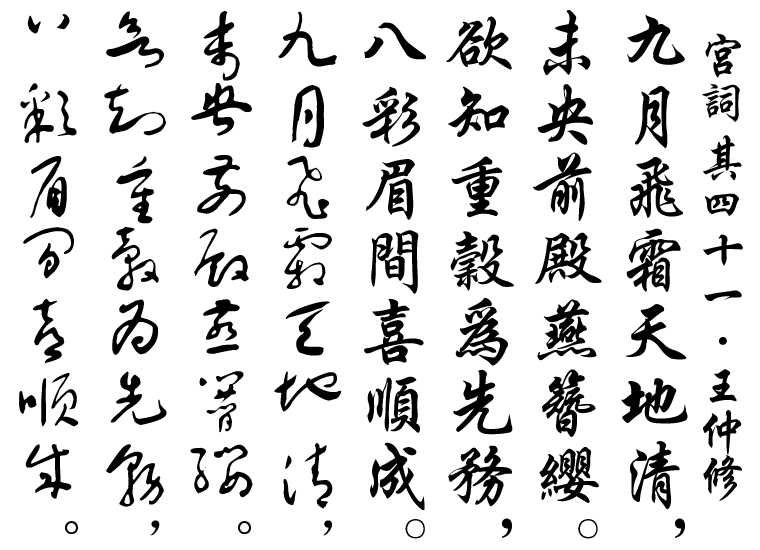 宮詞 其四十一・王仲修
九月飛霜天地清，
未央前殿燕簪纓。
欲知重穀為先務，
八彩眉間喜順成。
九月飛霜天地清，
未央前殿燕簪纓。
欲知重穀為先務，
八彩眉間喜順成。